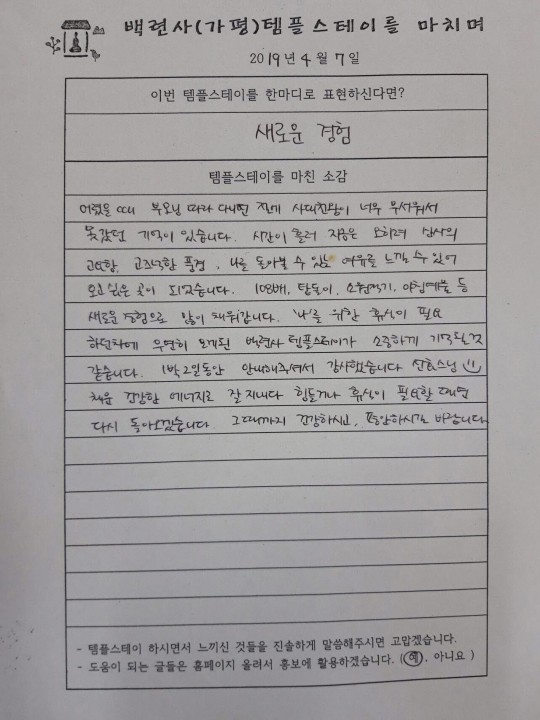 백련사(가평)템플스테이를 마치며
2019년 4월 7일
이번 템플스테이를 한마디로 표현하신다면?
새로운 경험
템플스테이를 마친 소감
어렸을 때 부모님 따라 다니면 절에 사대천왕이 너무 무서워서
못갔던 기억이 있습니다. 시간이 흘러 지금은 오히려 산사의
고요함, 고즈넉한 풍경, 나를 돌아볼 수 있는 여유를 느낄 수 있어
오고 싶은 곳이 되었습니다. 108배, 탑돌이, 소원적기, 아침예불 등
새로운 경험으로 많이 채워갑니다. '나'를 위한 휴식이 필요
하던차에 우연히 오게된 백련사 템플스테이가 소중하게 기억될 것
같습니다. 1박 2일동안 안내해주셔서 감사했습니다 스님
채운 건강한 에너지로 잘 지내다 힘들거나 휴식이 필요할 때면
다시 돌아오겠습니다. 그때까지 건강하시고, 평안하시길 바랍니다
- 템플스테이 하시면서 느끼신 것들을 진솔하게 말씀해주시면 고맙겠습니다.
- 도움이 되는 글들은 홈페이지 올려서 홍보에 활용하겠습니다. (예, 아니요)